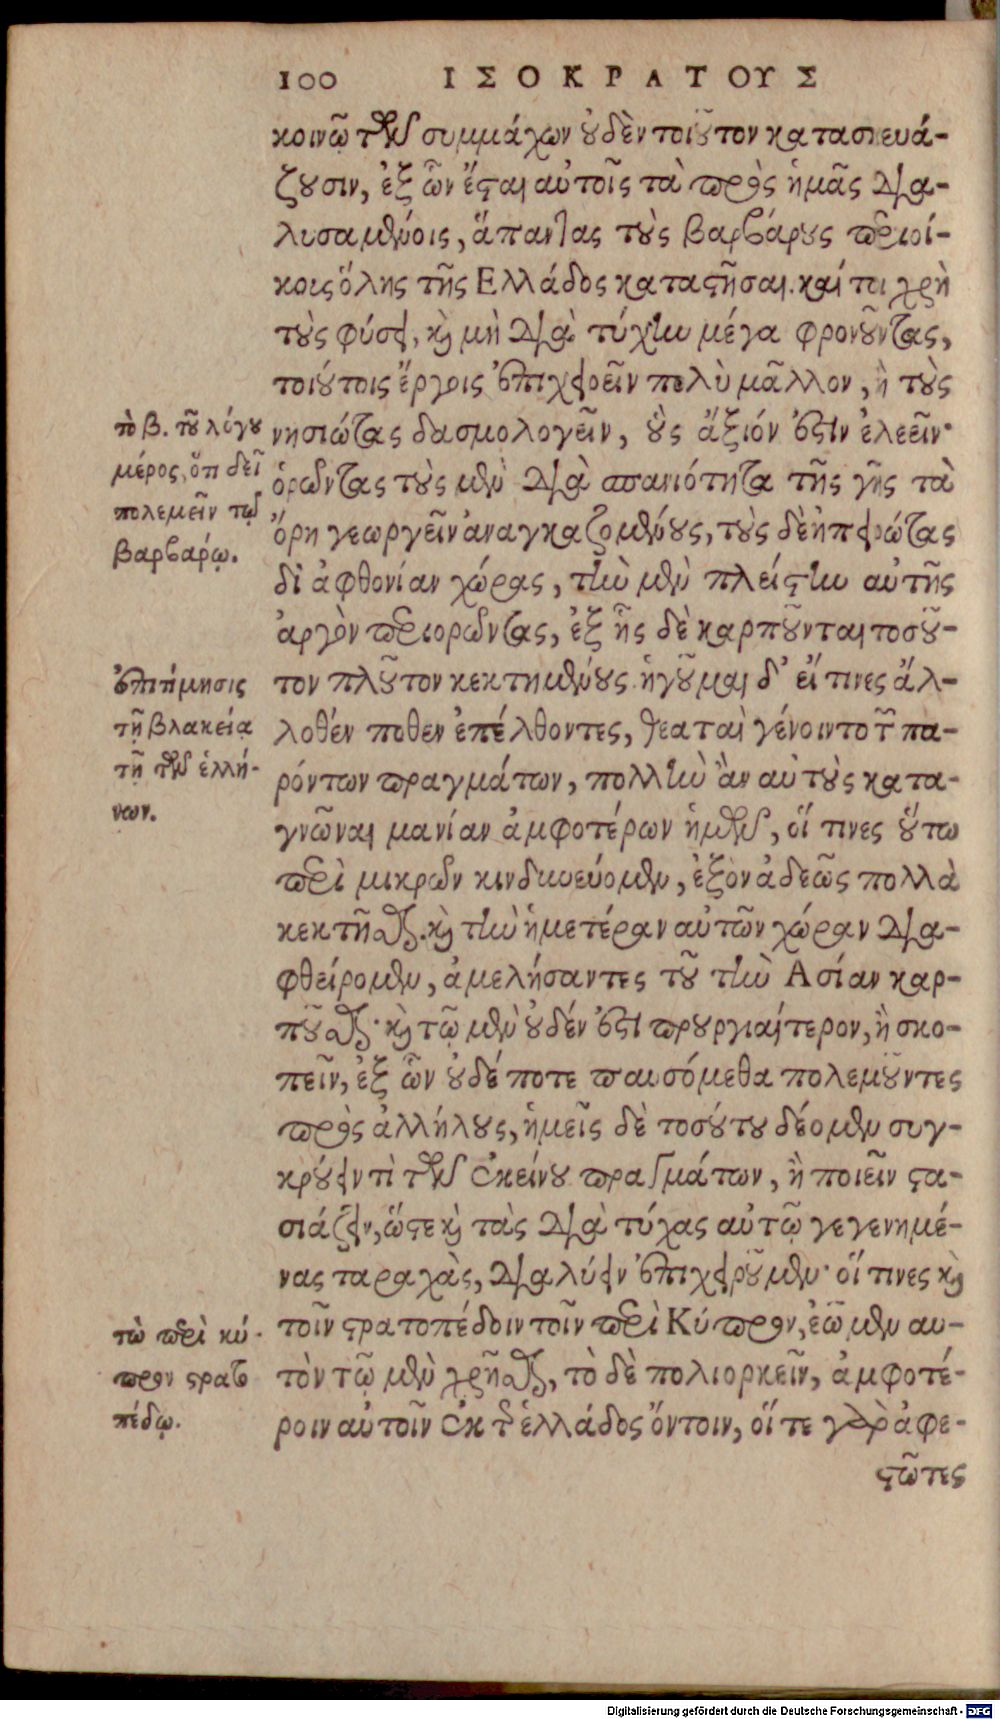 100 ΙΣΟΚΡΑΤΟΥΣ
κοινῷ τῶν συμμάχων οὐδὲν τοιοῦτον κατασκευά-
ζουσιν, ἐξ ὧν ἔσται αὐτοῖς τὰ πρὸς ἡμᾶς δια-
λυσαμένοις, ἅπαντας τοὺς βαρβάρους περιοί-
κοις ὅλης τῆς Ελλάδος καταστῆσαι. καί τοι χρὴ
τοὺς φύσει, καὶ μὴ διὰ τύχην μέγα φρονοῦντας,
τοιούτοις ἔργοις ἐπιχειρεῖν πολὺ μᾶλλον, ἢ τοὺς
νησιώτας δασμολογεῖν, οὓς ἄξιόν ἐστιν ἐλεεῖν·
ὁρῶντας τοὺς μὲν διὰ σπανιότητα τῆς γῆς τὰ
ὄρη γεωργεῖν ἀναγκαζομένους, τοὺς δὲ ἠπειρώτας
δι ἀφθονίαν χώρας, τὴν μὲν πλείστην αὐτῆς
ἀργὸν περιορῶντας, ἐξ ἧς δὲ καρποῦνται τοσοῦ-
τον πλοῦτον κεκτημένους. ἡγοῦμαι δ' εἴ τινες ἄλ-
λοθέν ποθεν ἐπέλθοντες, θεαταὶ γένοιντο τῶν πα-
ρόντων πραγμάτων, πολλὴν ἂν αὐτοὺς κατα-
γνῶναι μανίαν ἀμφοτέρων ἡμῶν, οἵ τινες οὕτω
περὶ μικρῶν κινδυνεύομεν, ἐξὸν ἀδεῶς πολλὰ
κεκτῆσθαι. καὶ τὴν ἡμετέραν αὐτῶν χώραν δια-
φθείρομεν, ἀμελήσαντες τοῦ τὴν Ασίαν καρ-
ποῦσθαι· καὶ τῷ μὲν οὐδέν ἐστι προυργιαίτερον, ἢ σκο-
πεῖν, ἐξ ὧν οὐδέ ποτε παυσόμεθα πολεμοῦντες
πρὸς ἀλλήλους, ἡμεῖς δὲ τοσούτου δέομεν συγ-
κρούειν τὶ τῶν ἐκείνου πραγμάτων, ἢ ποιεῖν στα-
σιάζειν, ὥστε καὶ τὰς διὰ τύχας αὐτῷ γεγενημέ-
νας ταραχὰς, διαλύειν ἐπιχειροῦμεν· οἵ τινες καὶ
τοῖν στρατοπέδοιν τοῖν περὶ Κύπρον, ἐῶμεν αυ-
τὸν τῷ μὲν χρῆσθαι, τὸ δὲ πολιορκεῖν, ἀμφοτέ-
ροιν αὐτοῖν ἐκ τῆς ἑλλάδος ὄντοιν, οἵ τε γὰρ ἀφε-
στῶτες
τὸ β. τοῦ λόγου
μέρος, ὅτι δεῖ
πολεμεῖν τῷ
βαρβάρῳ.
ἐπιτίμησις
τῇ βλακείᾳ
τῇ τῶν ἑλλή-
νων.
τὼ περὶ κύ-
προν στρατο
πέδῳ.
Digitalisierung gefördert durch die Deutsche Forschungsgemeinschaft - DFG